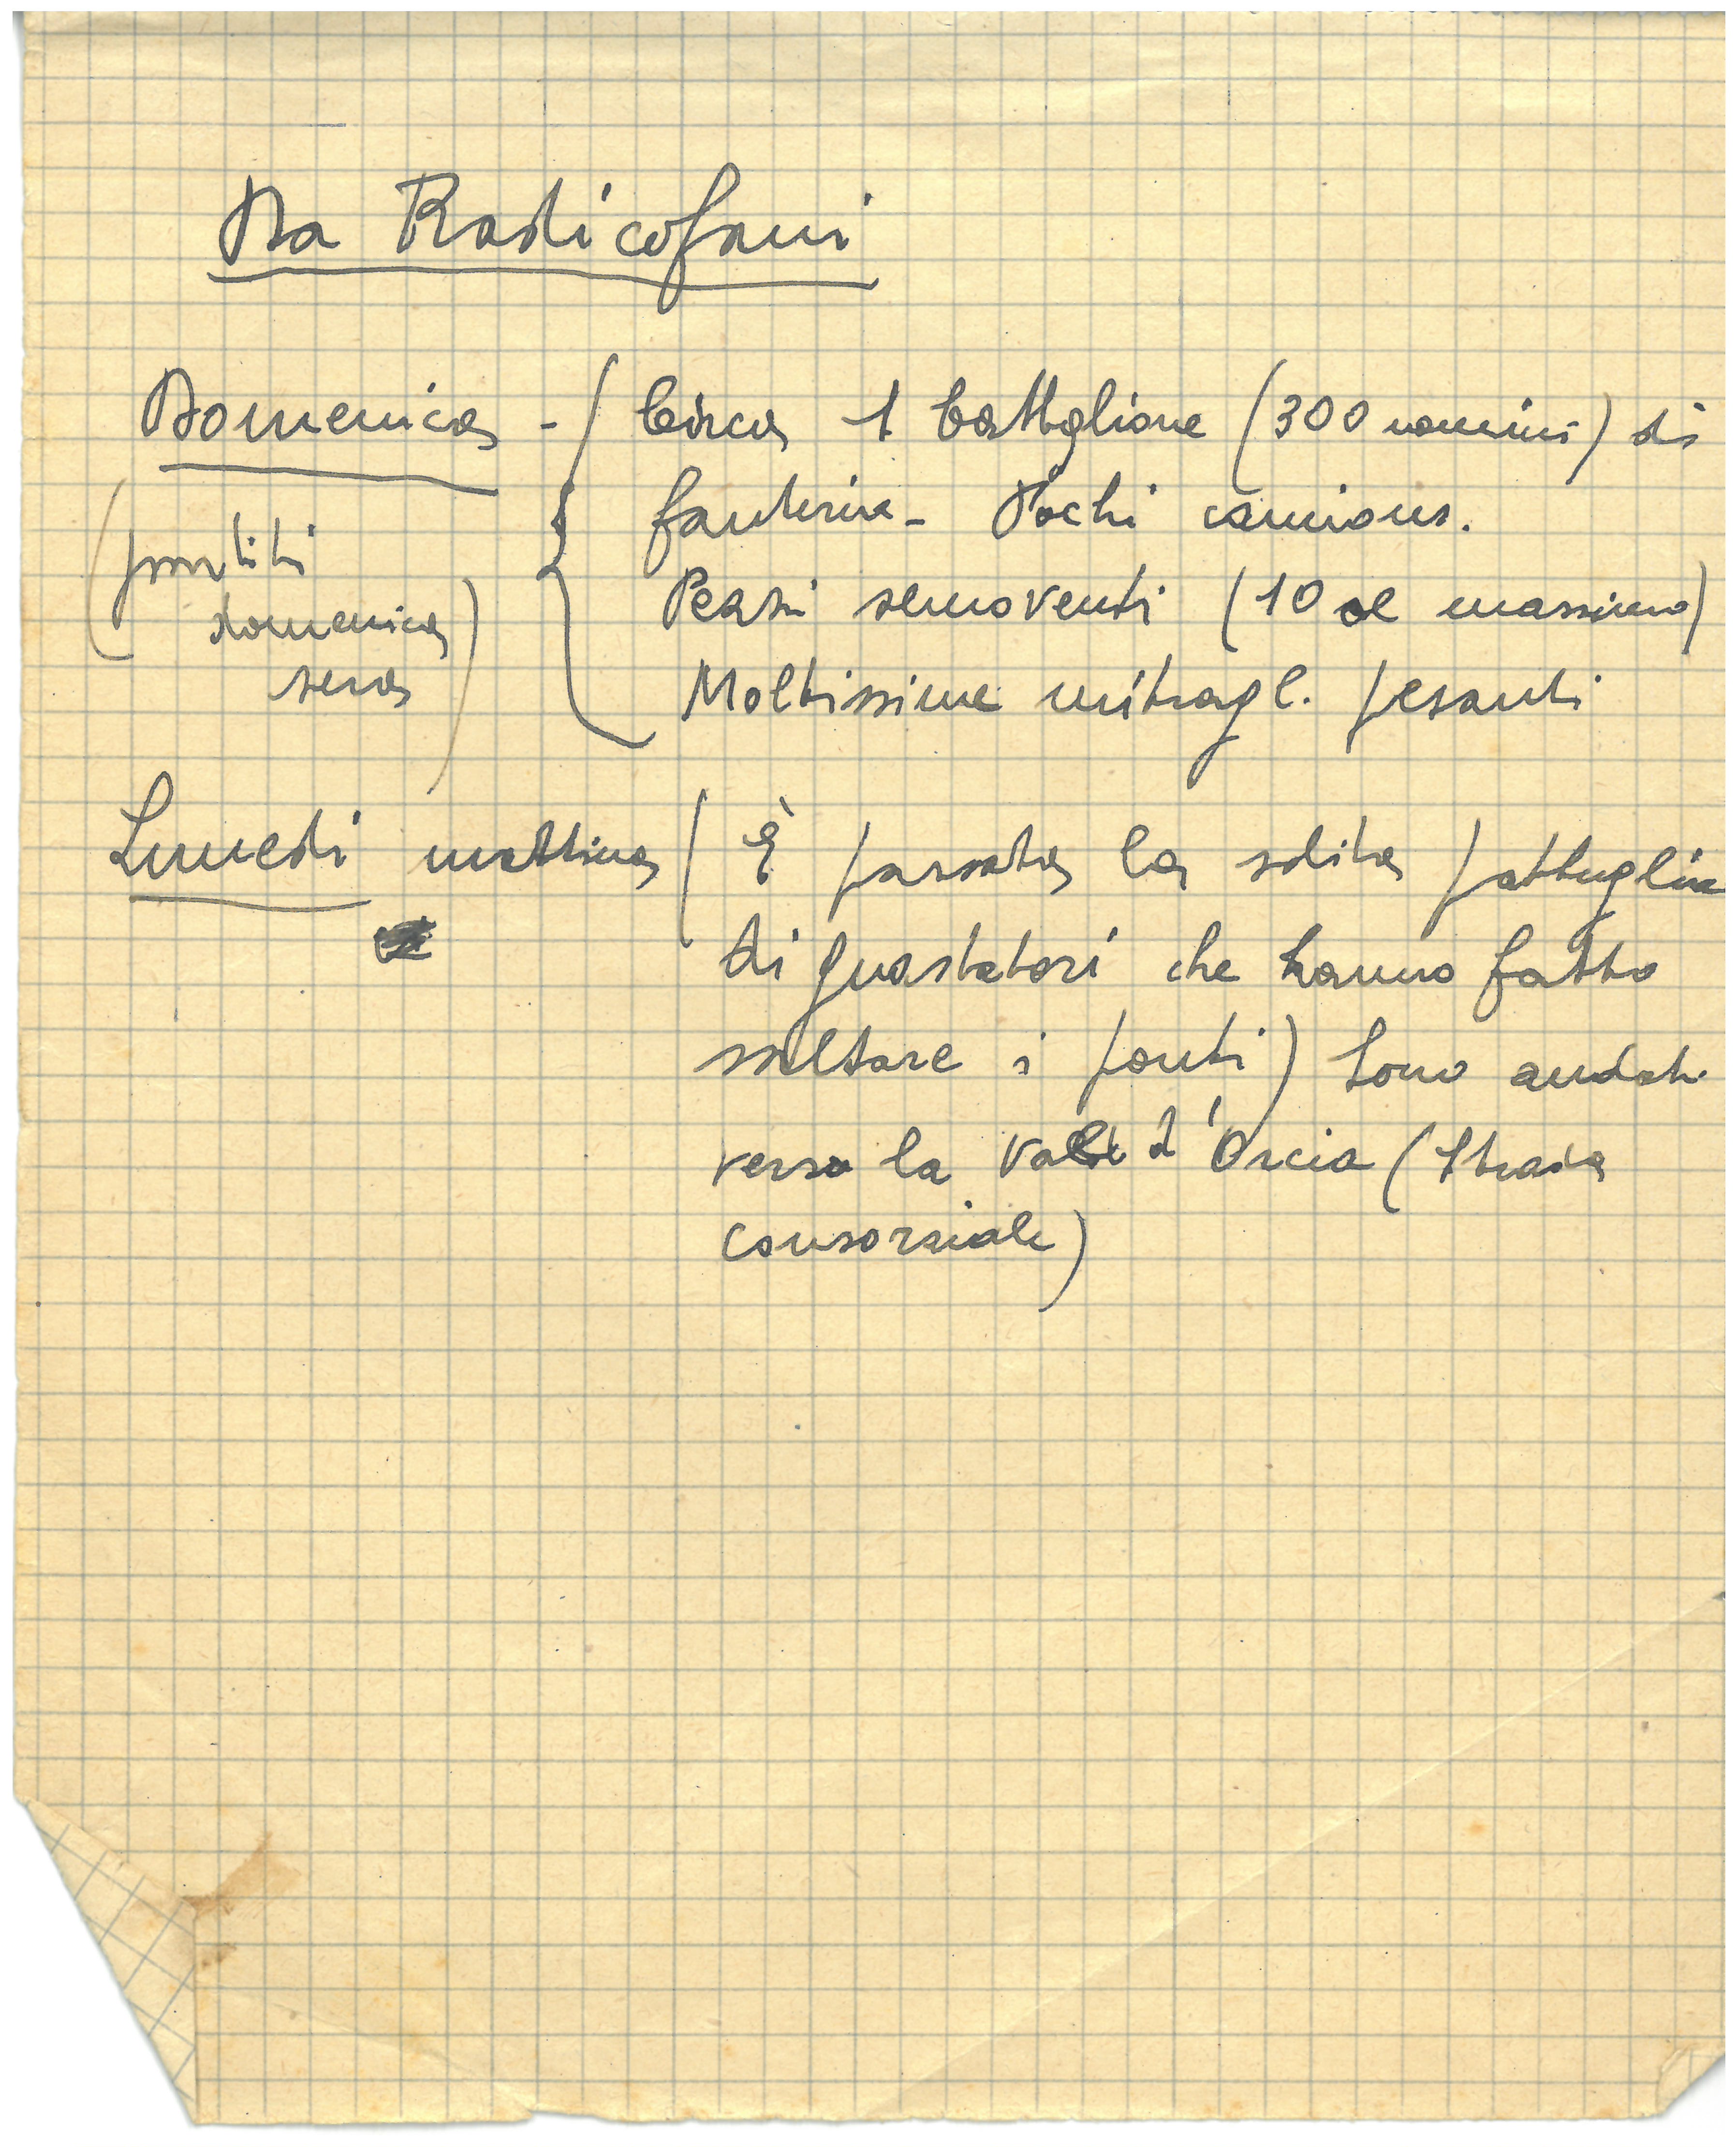 Da Radicofani
Domenica - Circa 1 battaglione (300 uomini) di
fanteria - Pochi camions.
(partiti
domenica
sera)
Pezzi semoventi (10 al massimo)
Moltissime mitragl. pesanti
Lunedi mattina (È passata la solita pattuglia
di guastatori che hanno fatto
saltare i ponti) Sono andati
verso la Val d'Orcia (Strada
consorziale)